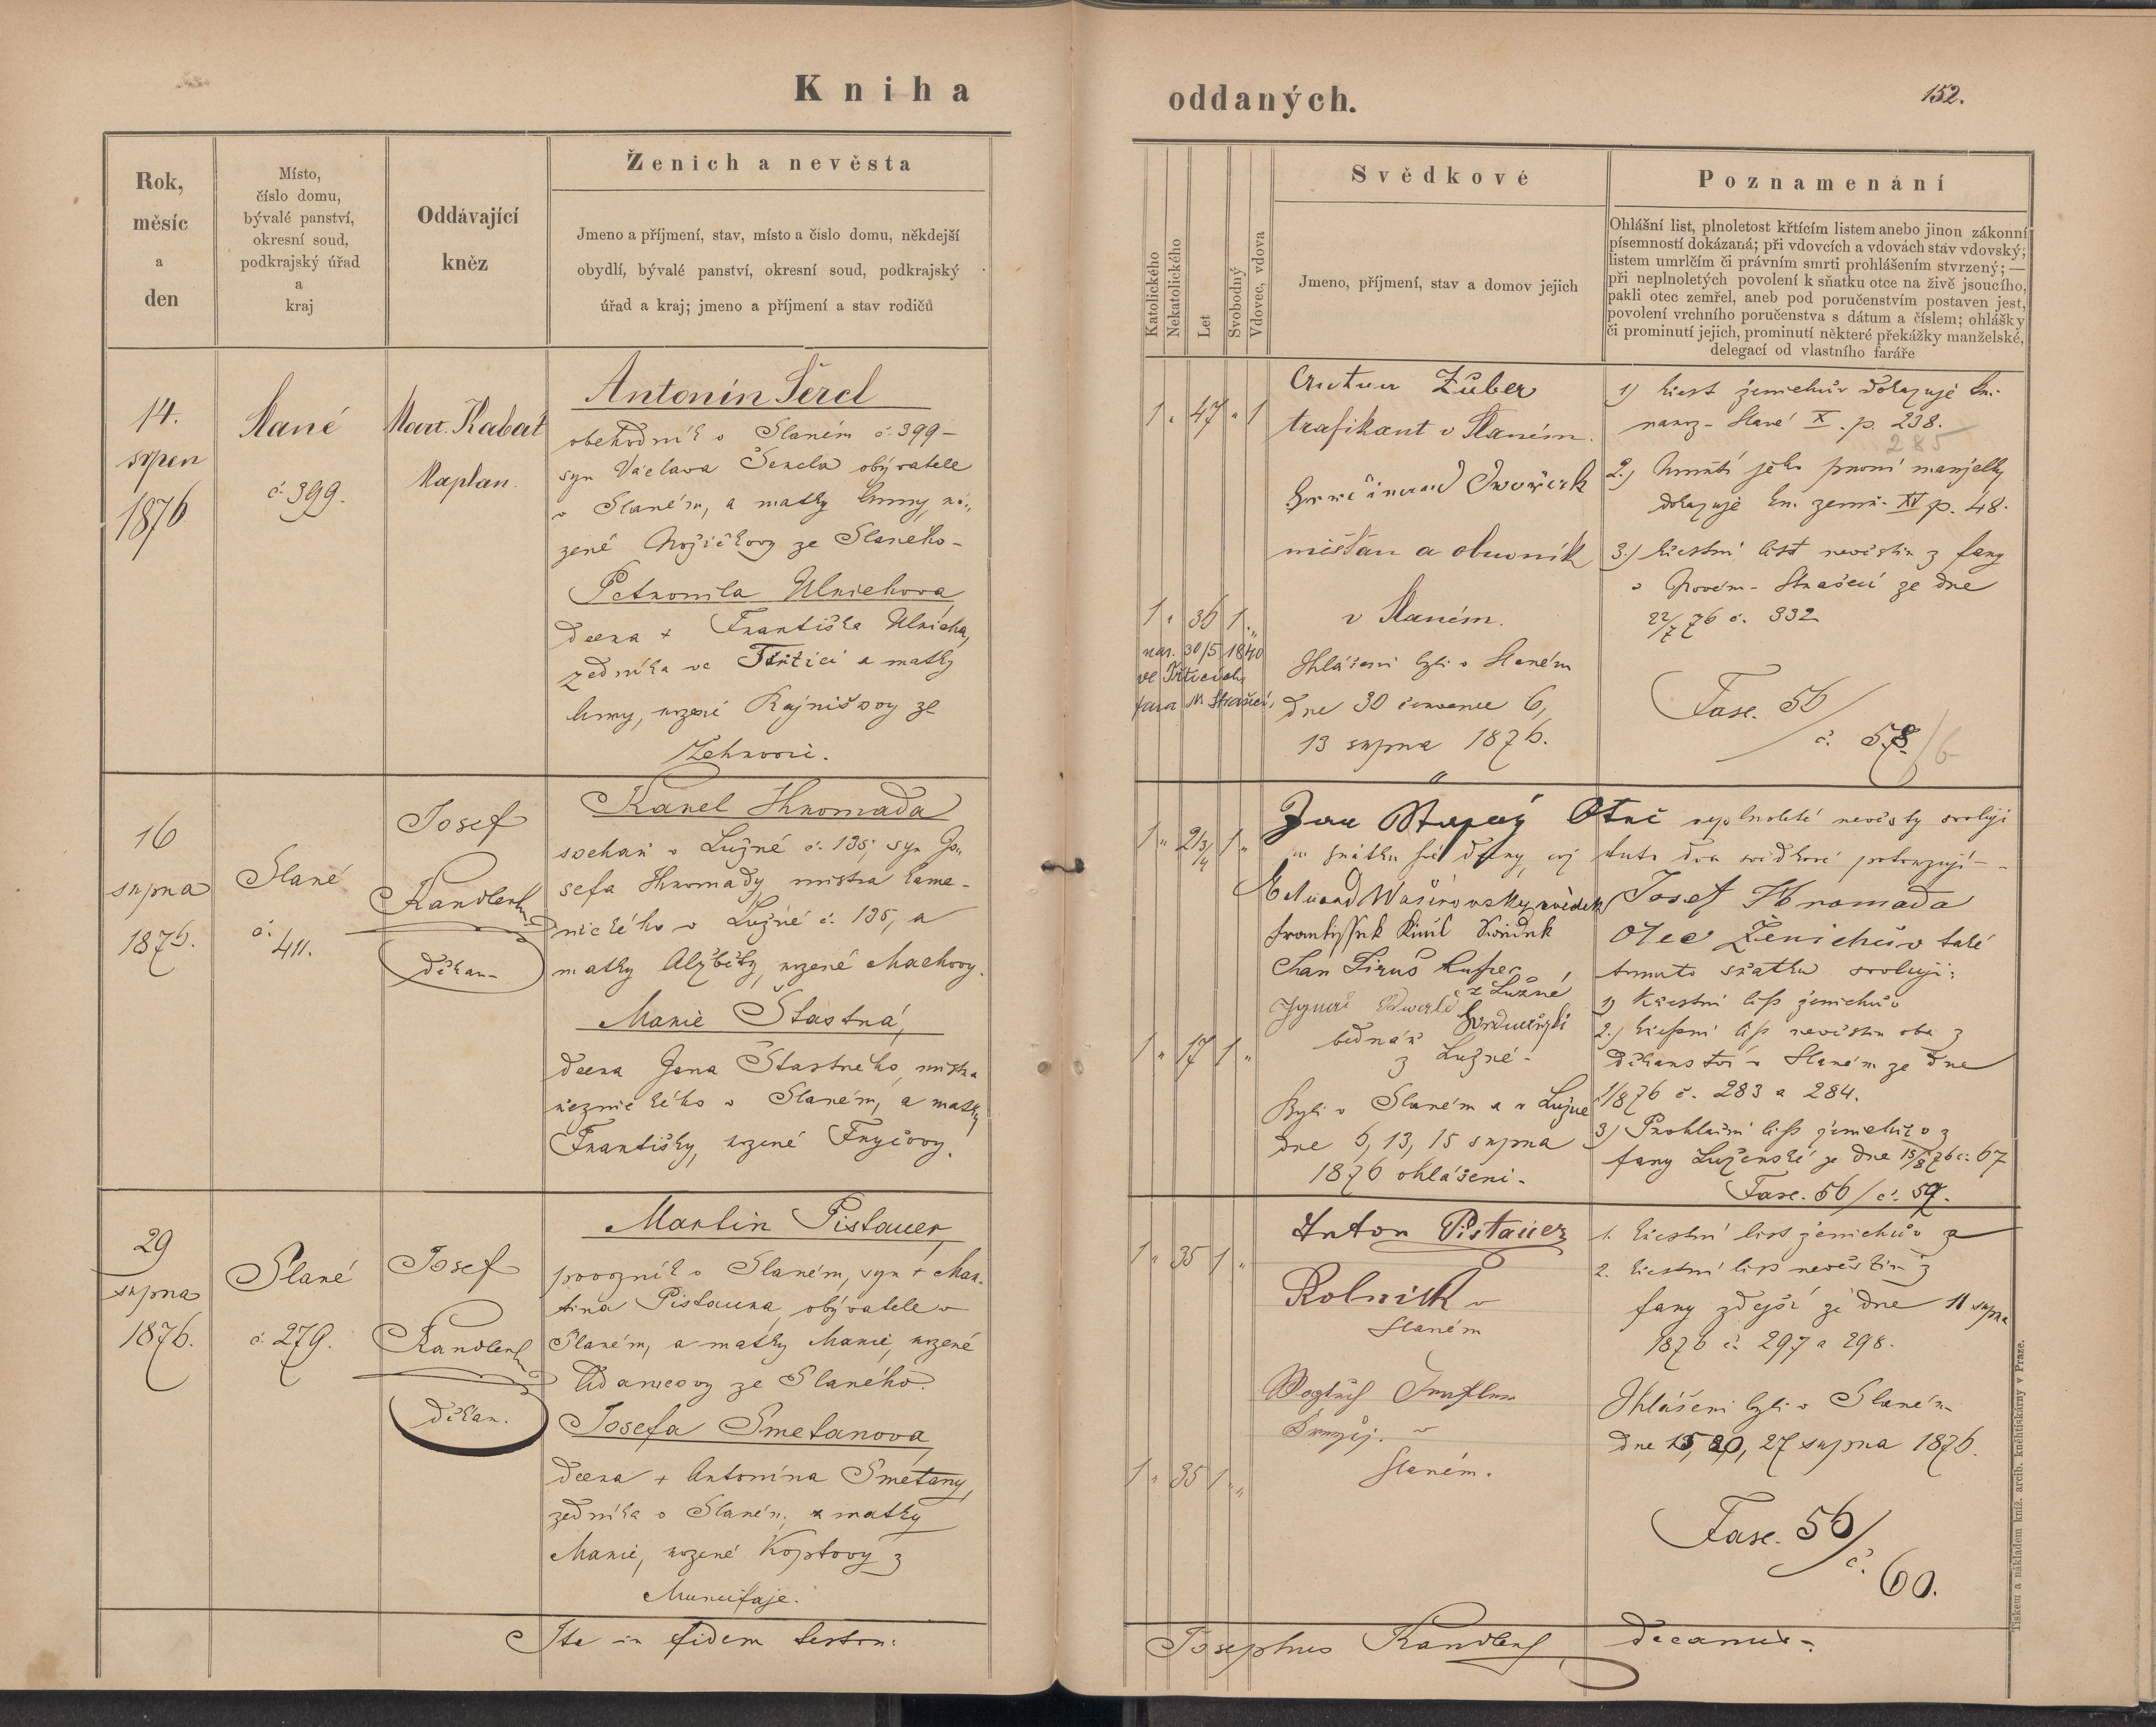 Kniha
oddaných.
152.
Rok,
měsíc
a
den
Místo,
číslo domu,
bývalé panství,
okresní soud,
podkrajský úřad
a
kraj
Oddávající
kněz
Ženich a nevěsta
Jmeno a příjmení, stav, místo a číslo domu, někdejší
obydlí, bývalé panství, okresní soud, podkrajský
úřad a kraj; jmeno a příjmení a stav rodičů
Katolického
Nekatolického
Let
Svobodný
Vdovec, vdova
Svědkové
Jmeno, příjmení, stav a domov jejich
Poznamenání
Ohlášní list, plnoletost křtícím listem anebo jinou zákonní
písemností dokázaná; při vdovcích a vdovách stav vdovský;
listem umrlčím či právním smrti prohlášením stvrzený; —
při neplnoletých povolení k sňatku otce na živě jsoucího,
pakli otec zemřel, aneb pod poručenstvím postaven jest,
povolení vrchního poručenstva s dátum a číslem; ohlášky
či prominutí jejich, prominutí některé překážky manželské,
delegací od vlastního faráře
14.
srpen
1876
Slané
č. 399.
Mart. Kabát
Kaplan.
Antonín Šercl
obchodník v Slaném č. 399-
syn Václava Šercla obývatele
v Slaném, a matky Anny, ro-
zené ze Slaného-
Petronila Ulrichova
dcera + Františka Ulricha,
zedníka ve Třtici a matky
Anny, rozené Rajnišovy ze
Zehrovic.
1 " 47 " 1
1 " 36 1 "
nar. 30/5 1840
ve Třticích
fara N Strašecí,
Antun Züber
trafikant v Slaném.
Dwořack
měšťan a obuvník
v Slaném.
Ohlášeni byli v Slaném
dne 30 července 6,
13 srpna 1876.
1) křest ženichův dokazuje kn.
naroz- Slané X. p. 238.
285
2.) Úmrtí jeho první manželky
dokazuje kn. zemř. XV p. 48.
3.) křestní list nevěstin z fary
v Novém-Strašecí ze dne
22/7 76 č. 332
Fasc. 56/
č. 58/6
16
srpna
1876.
Slané
č.
411.
Josef
Kandlert
děkan
Karel Hromada
sochař v Lužné č. 135, syn Jo-
sefa Hromady, mistra kame-
nického v Lužné č. 135, a
matky Alžběty, rozené Machovy.
Marie Šťastná,
dcera Jana Šťastného, mistra
řeznického v Slaném, a matky
Františky, rozené Fryčovy.
1 " 21 3/4 1 "
1 " 17 1 "
Jan Otec neplnoleté nevěsty svoluji
sňátku své dcery, což tuto dva svědkové potvrzují-
Eduard svědek
svědek
Jan
z Lužné
Ignác
bednář
z Lužné-
Byli v Slaném a v Lužné
dne 6, 13, 15 srpna
1876 ohlášeni-
Josef Hromada
Otec Ženichův také
tomuto sňatku svoluji:
1) Křestní list ženichův
2.) křestní list nevěstin oba z
děkanství v Slaném ze dne
1/8 76 č. 283 a 284.
3) Prohlašní list ženichův z
fary Luženské ze dne 15/8 76 č. 67
Fasc. 56/č. 59.
29
srpna
1876.
Slané
č. 279.
Josef
Kandlert
děkan.
Martin Pistauer,
povozník v Slaném, syn + Mar-
tina Pistauera, obývatele v
Slaném, a matky Marie, rozené
Adamcovy ze Slaného.
Josefa Smetanova
dcera + Antonína Smetany,
zedníka v Slaném, a matky
Marie, rozené Koptovy z
Muncifaje.
1 " 35 1 "
1 " 35 1 "
Anton Pistauer
Rolnik v
Slaném
v
Slaném.
1. křestní list ženichův a
2. křestní list nevěstin z
fary zdejší ze dne 11 srpna
1876 č. 297 a 298.
Ohlášeni byli v Slaném
dne 15, 20, 27 srpna 1876.
Fasc. 56/
č. 60.
Ita in fidem testor:
Josephus Kandlert
decanus-
Tiskem a nákladem kníž. arcib. kněhtiskárny v Praze.